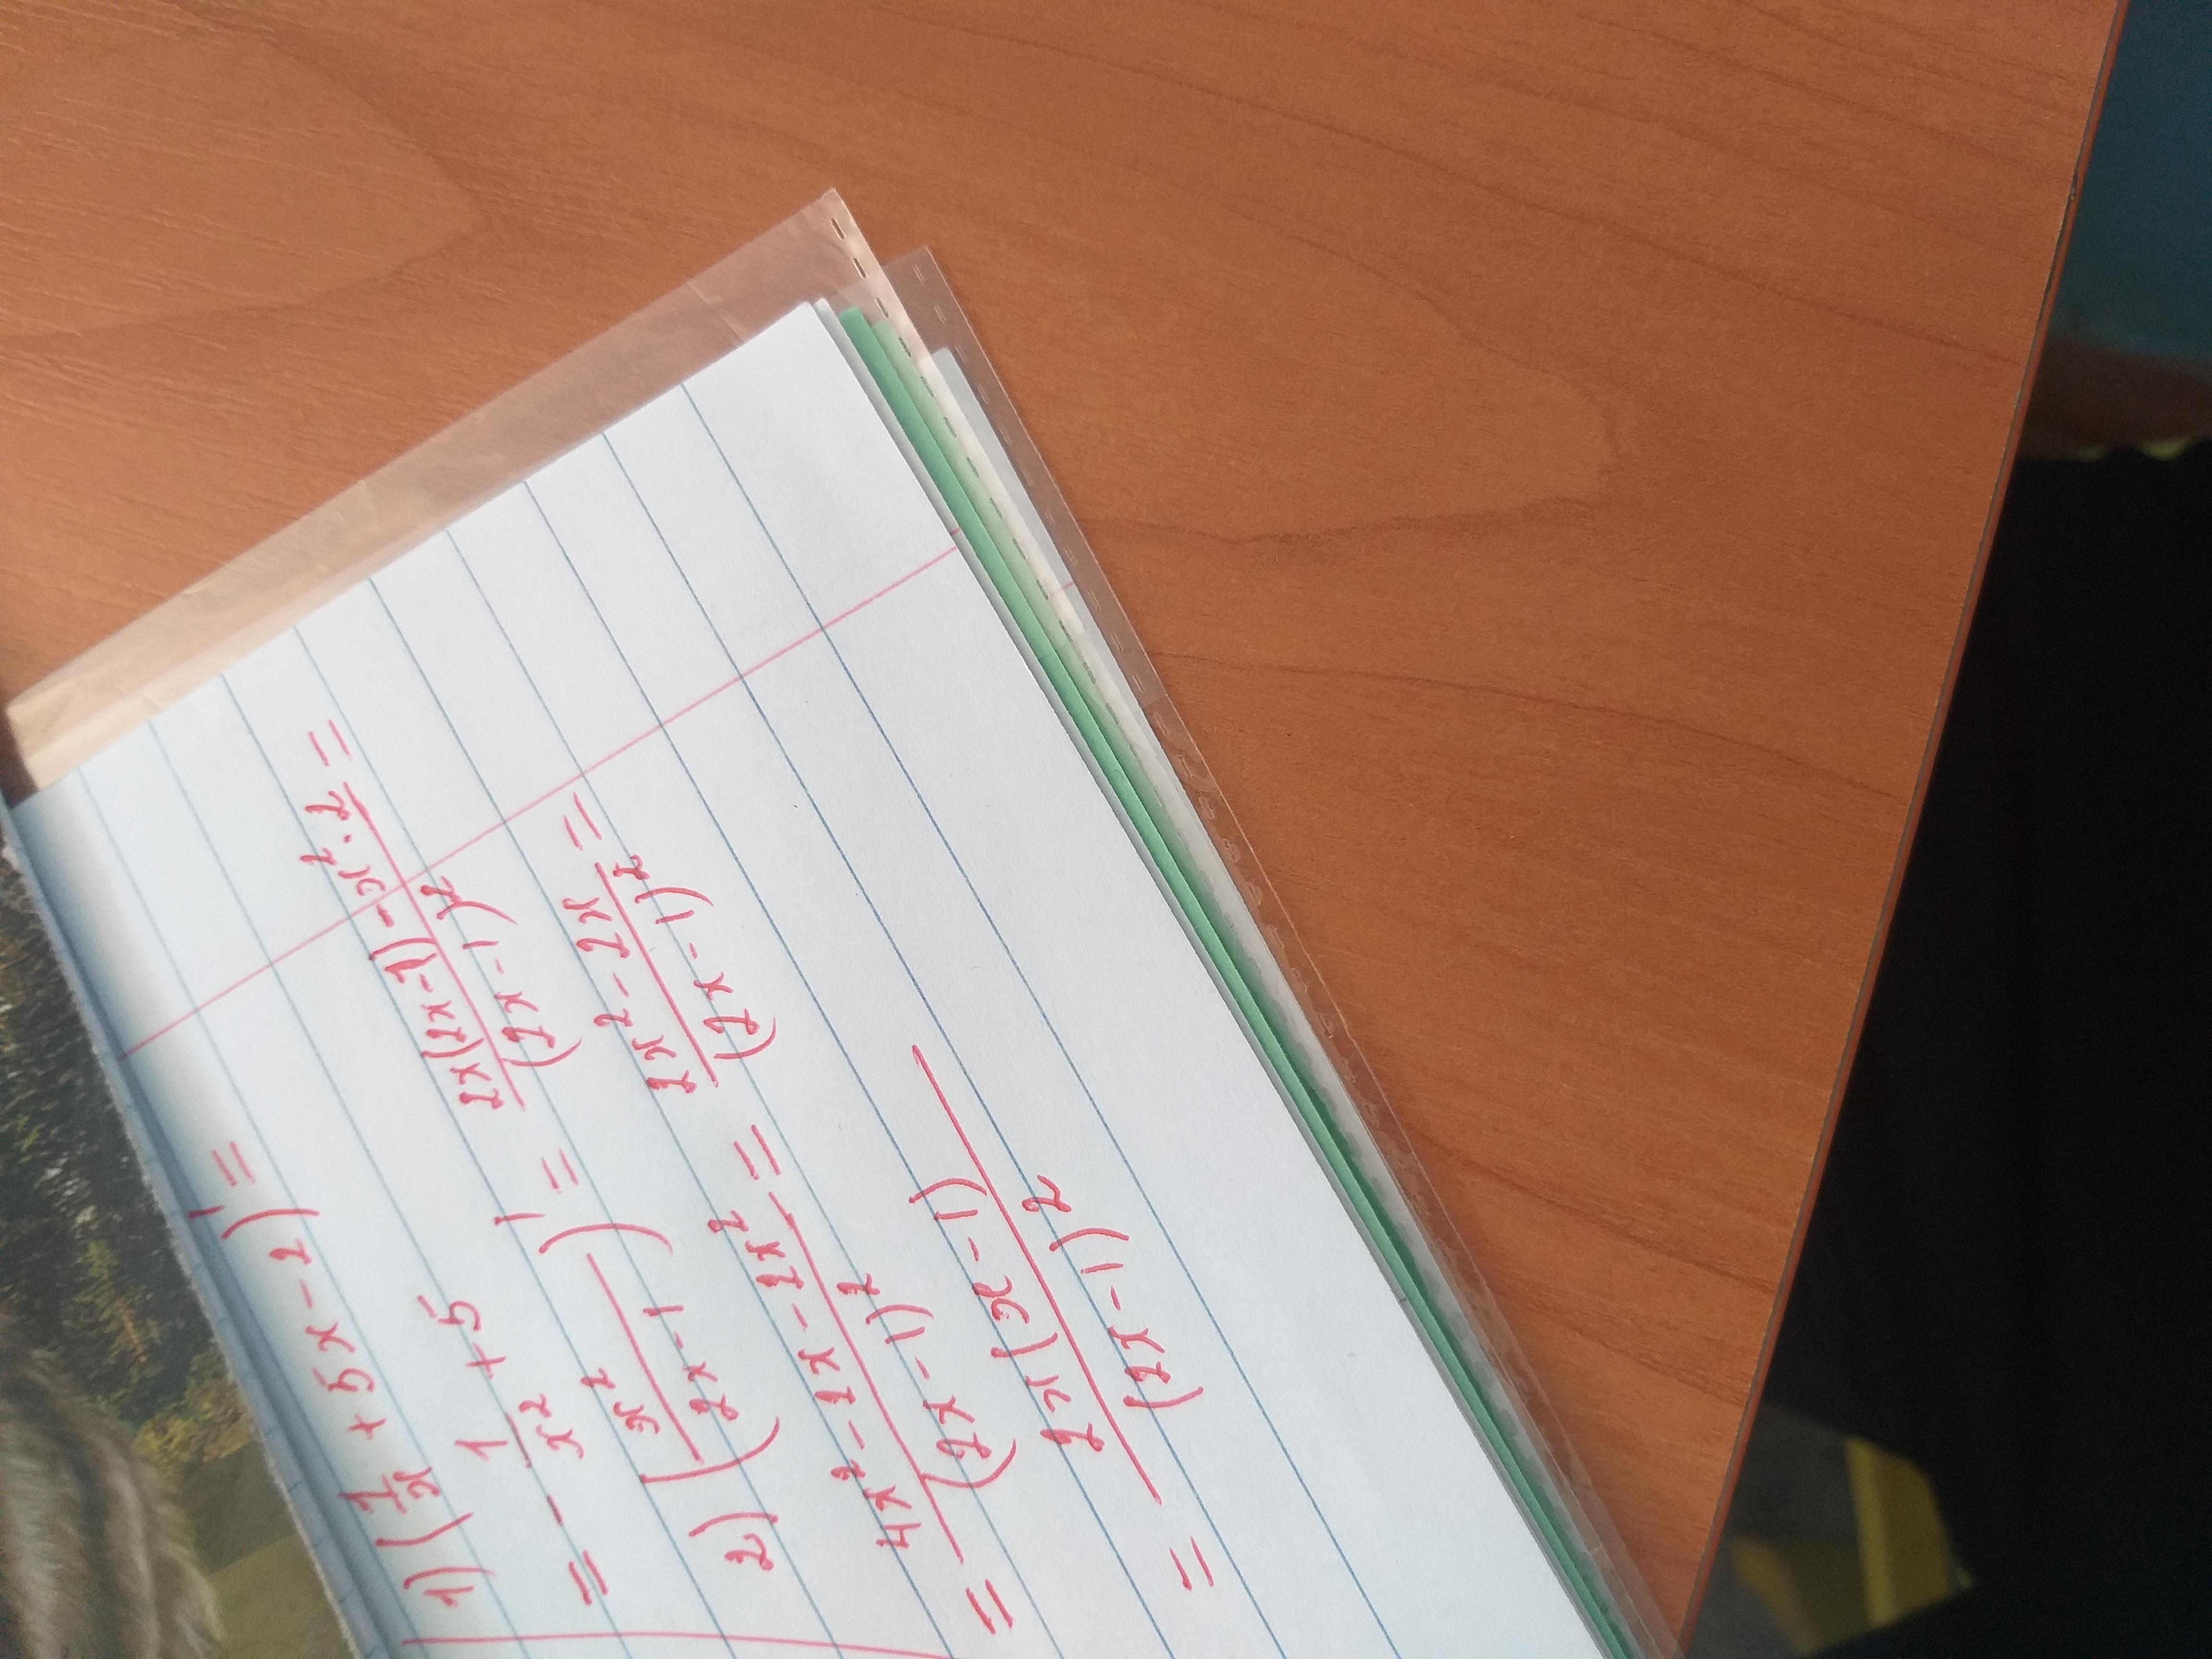 1) (1/x + 5x - 2)' =
= - 1/x² + 5
2) (x²/(2x - 1))' = (2x(2x - 1) - x² · 2)/(2x - 1)² =
= (4x² - 2x - 2x²)/(2x - 1)² = (2x² - 2x)/(2x - 1)² =
= 2x(x - 1)/(2x - 1)²